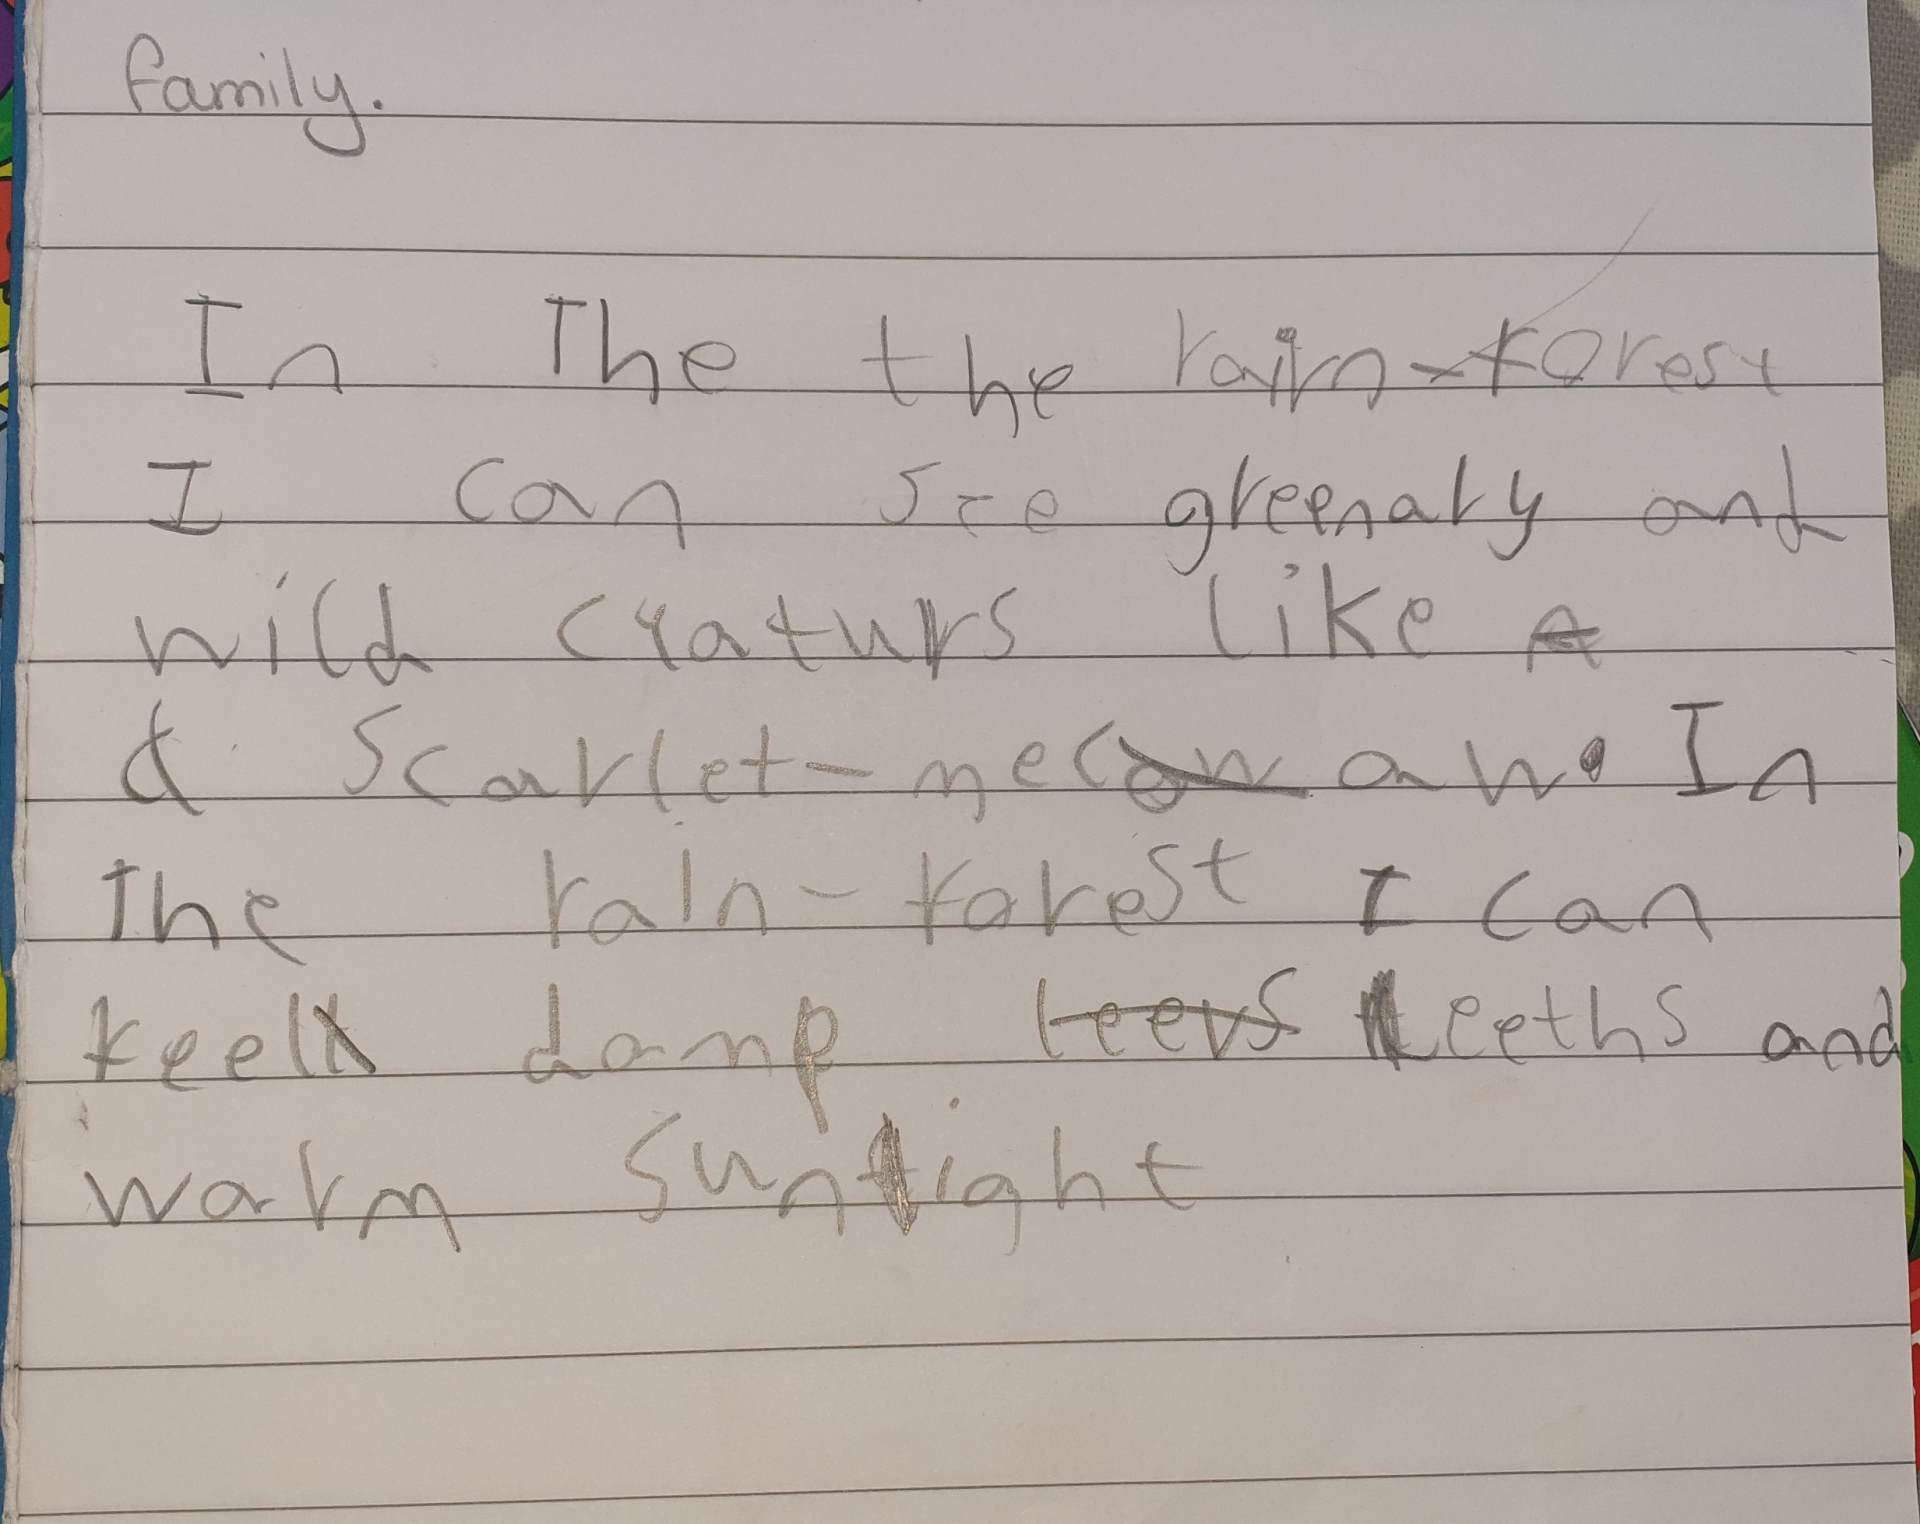 family.
In The the rain-forest
I can see greenary and
wild craturs like a
a scarlet-mecaw aw. In
The rain-forest I can
feell damp leevs leeths and
warm sunlight